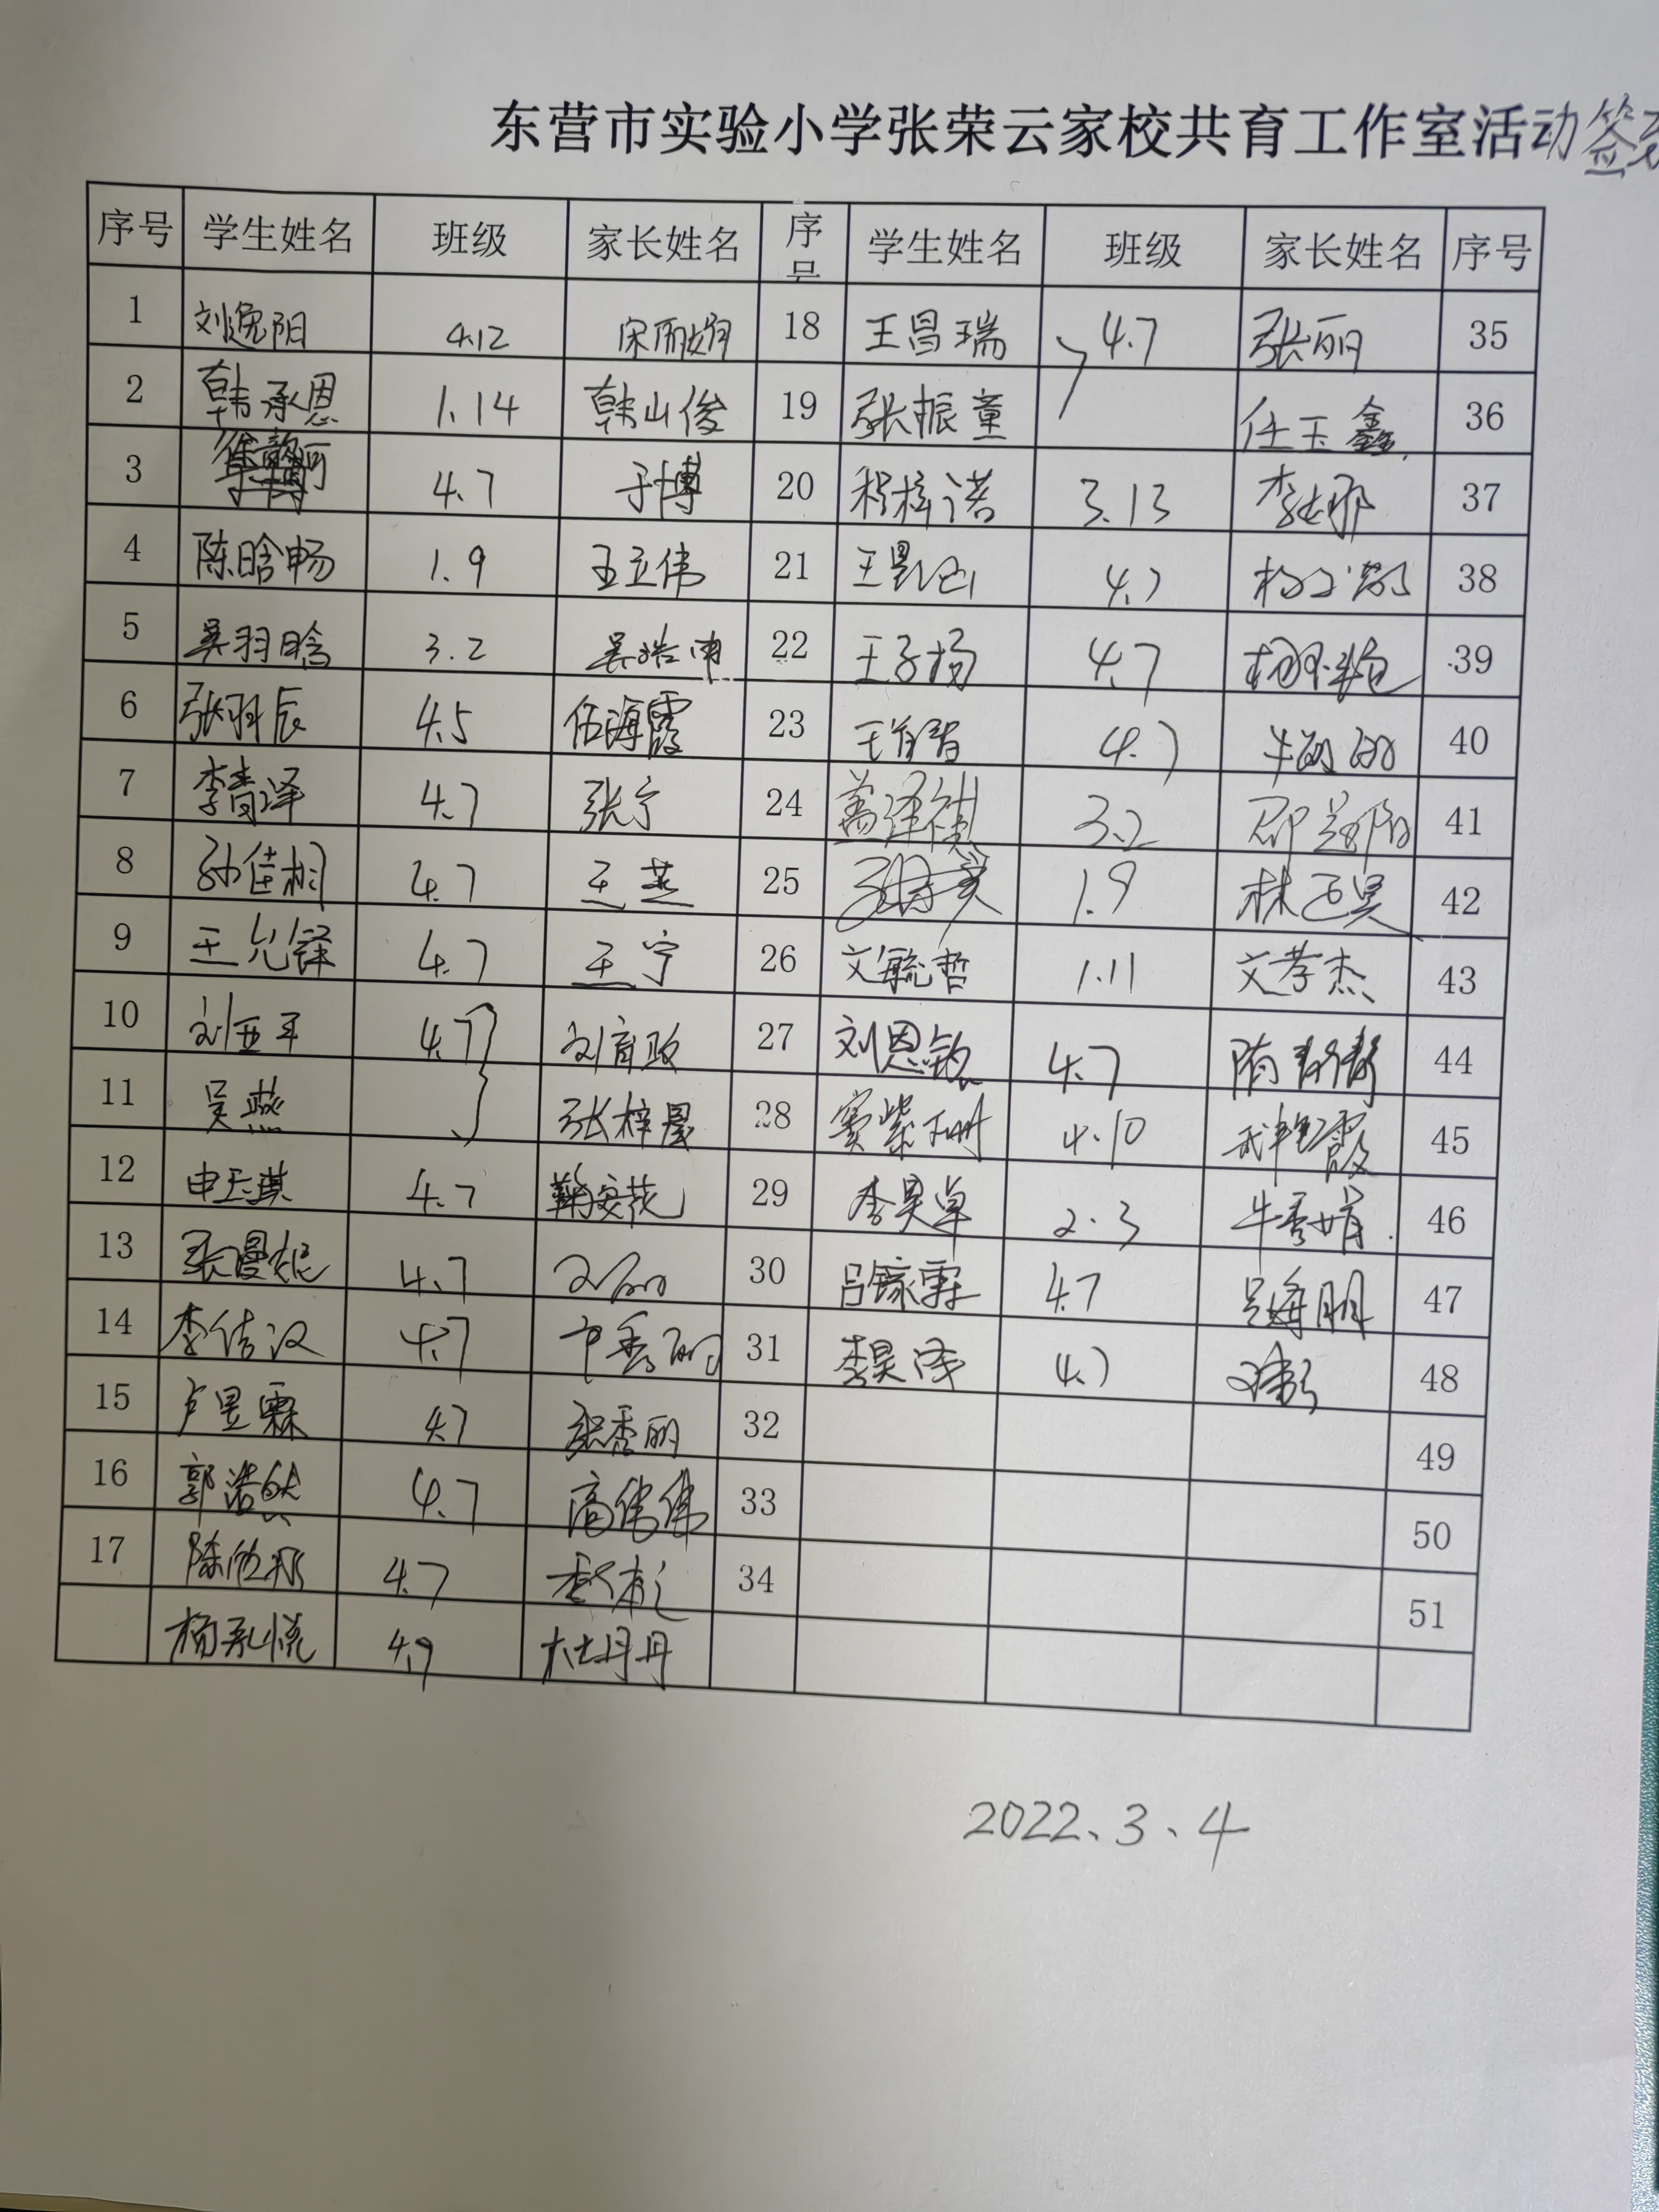 东营市实验小学张荣云家校共育工作室活动签
序号 学生姓名 班级 家长姓名 序号 学生姓名 班级 家长姓名 序号
1 刘逸阳 4.12 宋丽娟 18 王昌瑞 4.7 张丽 35
2 韩承恩 1.14 韩山俊 19 张振童 任玉鑫 36
3 4.7 于博 20 程梓诺 3.13 李娜 37
4 陈晗畅 1.9 王立伟 21 4.7 38
5 吴羽晗 3.2 22 王子杨 4.7 39
6 张羽辰 4.5 伍海霞 23 4.7 40
7 李青泽 4.7 张宁 24 盖泽祺 3.2 41
8 孙佳桐 4.7 王燕 25 1.9 42
9 王允铎 4.7 王宁 26 文毓哲 1.11 文孝杰 43
10 刘亚平 4.7 刘育政 27 刘恩铭 4.7 隋静静 44
11 吴燕 张梓晨 28 窦紫珊 4.10 45
12 申玉淇 4.7 鞠安花 29 李昊卓 2.3 牛秀娟 46
13 张曼妮 4.7 30 吕镓霖 4.7 吕海朋 47
14 李佶汶 4.7 31 李昊泽 4.7 48
15 卢昱霖 4.7 张秀丽 32 49
16 郭浩然 4.7 高伟伟 33 50
17 4.7 34 51
杨承悦 4.9 杜丹丹
2022.3.4